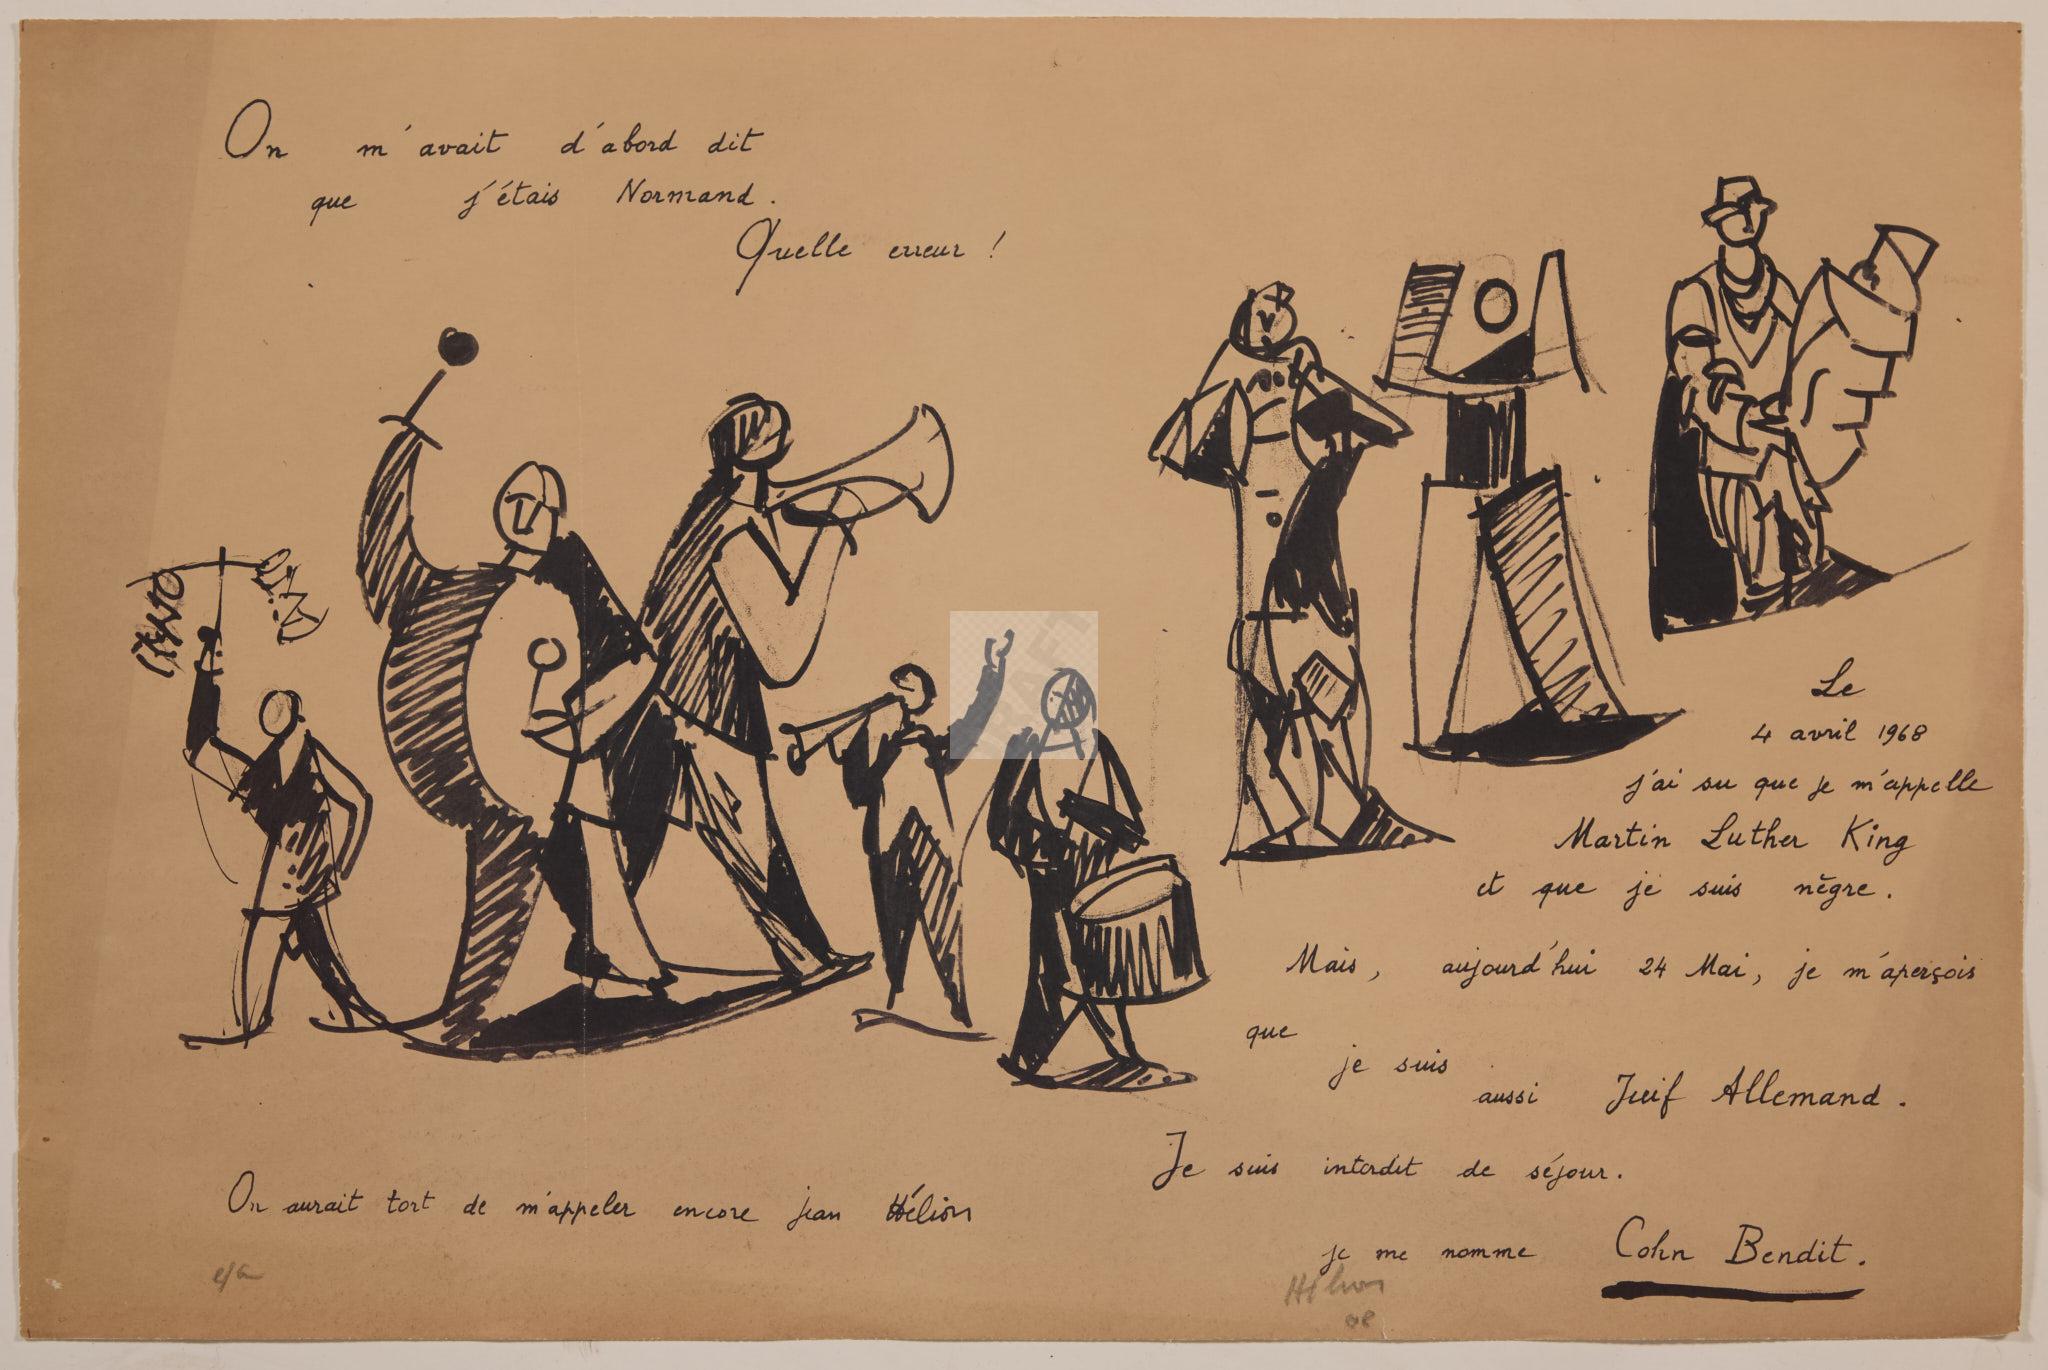 On m'avait d'abord dit
que j'étais Normand.
Quelle erreur !
Le
4 avril 1968
j'ai su que je m'appelle
Martin Luther King
et que je suis nègre.
Mais, aujourd'hui 24 Mai, je m'aperçois
que
je suis
aussi Juif Allemand.
Je suis interdit de séjour.
On aurait tort de m'appeler encore jean Hélion
je me nomme Cohn Bendit.
e/a
Hélion